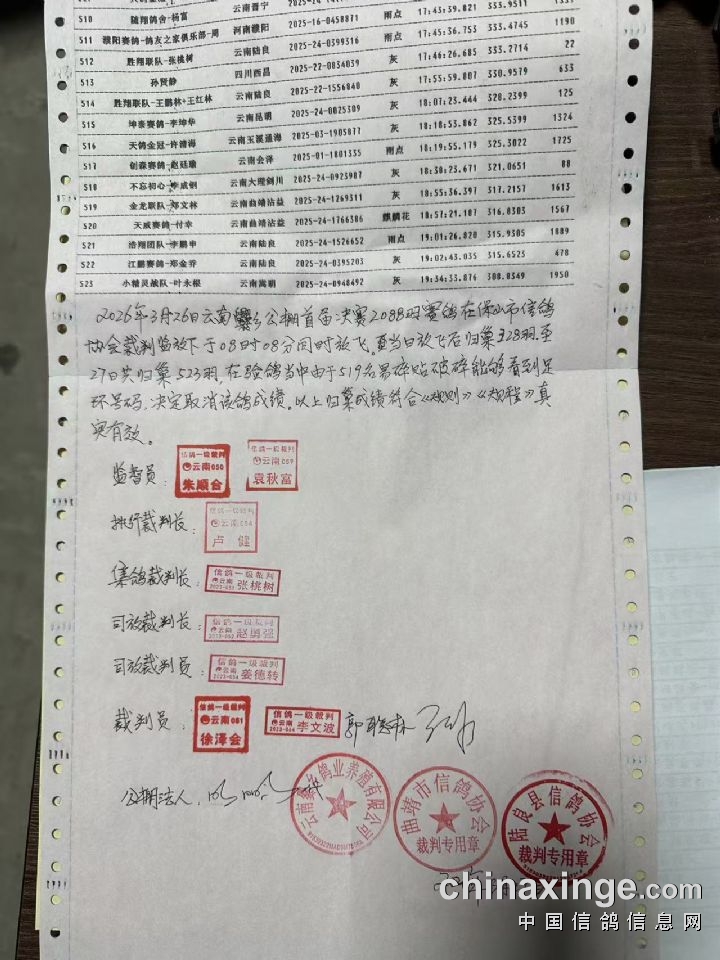 510 随翔鸽舍-杨富 云南晋宁 17:43:39.821 333.9511
511 濮阳赛鸽-鸽友之家俱乐部-周 河南濮阳 2025-16-0458871 雨点 17:45:36.753 333.4745 1190
512 胜翔联队-张桃树 云南陆良 2025-24-0399316 雨点 17:46:26.685 333.2714 22
513 孙贤静 四川西昌 2025-22-0834039 灰 17:55:59.807 330.9579 633
514 胜翔联队-王鹏林+王红林 云南陆良 2025-22-1556840 灰 18:07:23.444 328.2399 125
515 坤泰赛鸽-李坤华 云南昆明 2025-24-0025309 灰 18:18:53.862 325.5399 1324
516 天鸽金冠-许清海 云南玉溪通海 2025-03-1905877 灰 18:19:55.179 325.3022 1725
517 创森赛鸽-赵廷瑜 云南会泽 2025-01-1801335 雨点 18:38:23.671 321.0651 88
518 不忘初心-李威钢 云南大理剑川 2025-24-0923987 灰 18:55:36.397 317.2157 1613
519 金龙联队-郑文林 云南曲靖沾益 2025-24-1769311 灰 18:57:21.187 316.8303 1567
520 天威赛鸽-付幸 云南曲靖沾益 2025-24-1766386 麒麟花 19:01:26.820 315.9305 1889
521 浩翔团队-李鹏申 云南陆良 2025-24-1526652 雨点 19:02:43.035 315.6525 478
522 江鹏赛鸽-郑金乔 云南陆良 2025-24-0395203 灰 19:34:33.876 308.8349 1950
523 小精灵战队-叶永根 云南嵩明 2025-24-0948492 灰
2026年3月26日云南爨乡公棚首届决赛2088羽赛鸽在保山市信鸽
协会裁判监放下于08时08分同时放飞。至当日放飞后归巢328羽至
27日共归巢523羽,在验鸽当中由于519名易碎贴破碎能够看到足
环号码,决定取消该鸽成绩。以上归巢成绩符合《规则》《规程》真
实有效。
监督员: 信鸽一级裁判 云南050 朱顺合 信鸽一级裁判 云南059 袁秋富
排行裁判长: 信鸽一级裁判 云南054 卢健
集鸽裁判长 信鸽一级裁判 云南 张桃树
司放裁判长: 信鸽一级裁判 云南 赵勇强
司放裁判员: 信鸽一级裁判 云南 姜德转
裁判员: 信鸽一级裁判 云南081 徐泽会 信鸽一级裁判 云南 李文波
公棚法人:
曲靖市信鸽协会 裁判专用章
陆良县信鸽协会 裁判专用章
chinaxinge.com
中国信鸽信息网